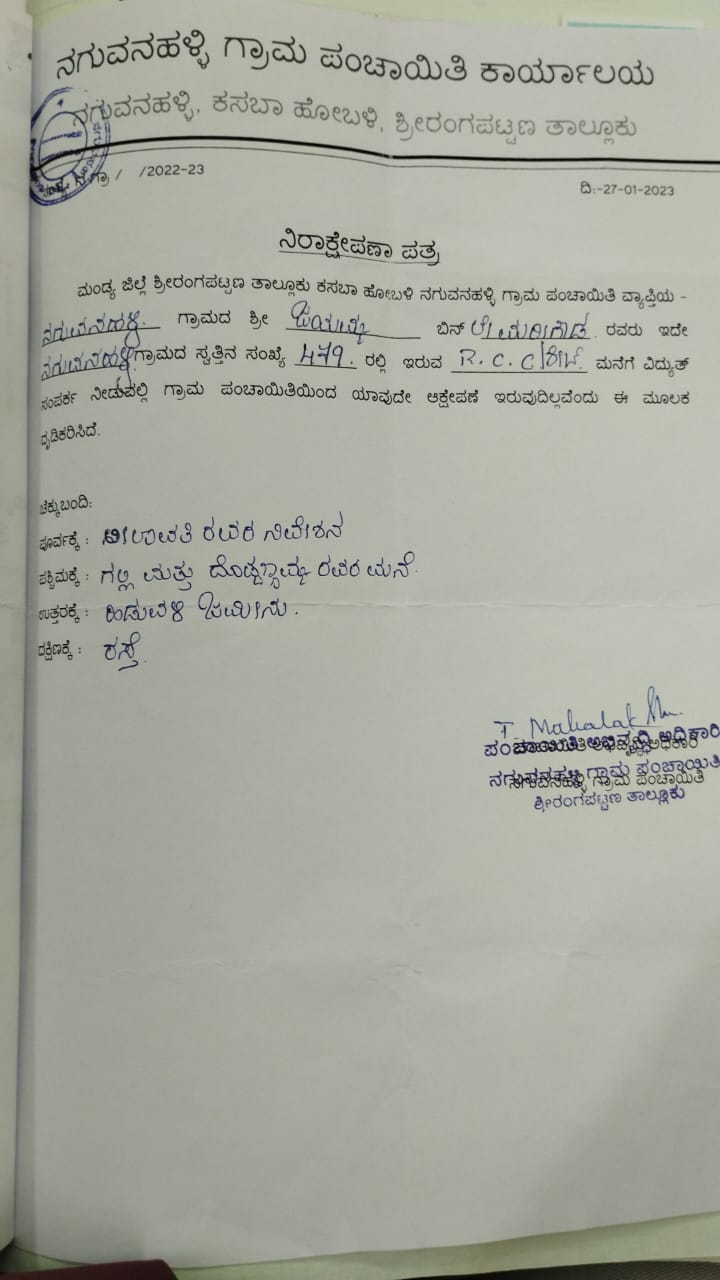 ನಗುವನಹಳ್ಳಿ ಗ್ರಾಮ ಪಂಚಾಯಿತಿ ಕಾರ್ಯಾಲಯ
ನಗುವನಹಳ್ಳಿ, ಕಸಬಾ ಹೋಬಳಿ, ಶ್ರೀರಂಗಪಟ್ಟಣ ತಾಲ್ಲೂಕು
/ /2022-23
ದಿ:-27-01-2023
ನಿರಾಕ್ಷೇಪಣಾ ಪತ್ರ
ಮಂಡ್ಯ ಜಿಲ್ಲೆ ಶ್ರೀರಂಗಪಟ್ಟಣ ತಾಲ್ಲೂಕು ಕಸಬಾ ಹೋಬಳಿ ನಗುವನಹಳ್ಳಿ ಗ್ರಾಮ ಪಂಚಾಯಿತಿ ವ್ಯಾಪ್ತಿಯ -
ನಗುವನಹಳ್ಳಿ ಗ್ರಾಮದ ಶ್ರೀ ಬಿನ್ ರವರು ಇದೇ
ನಗುವನಹಳ್ಳಿ ಗ್ರಾಮದ ಸ್ವತ್ತಿನ ಸಂಖ್ಯೆ 479. ರಲ್ಲಿ ಇರುವ R. C. C ಮನೆಗೆ ವಿದ್ಯುತ್
ಸಂಪರ್ಕ ನೀಡುವಲ್ಲಿ ಗ್ರಾಮ ಪಂಚಾಯಿತಿಯಿಂದ ಯಾವುದೇ ಆಕ್ಷೇಪಣೆ ಇರುವುದಿಲ್ಲವೆಂದು ಈ ಮೂಲಕ
ದೃಡಿಕರಿಸಿದೆ.
ಚೆಕ್ಕುಬಂದಿ:
ಪೂರ್ವಕ್ಕೆ : ಲೀಲಾವತಿ ರವರ ನಿವೇಶನ
ಪಶ್ಚಿಮಕ್ಕೆ : ಗಲ್ಲಿ ಮತ್ತು ರವರ ಮನೆ.
ಉತ್ತರಕ್ಕೆ : ಹಿಡುವಳಿ ಜಮೀನು.
ದಕ್ಷಿಣಕ್ಕೆ : ರಸ್ತೆ.
ಪಂಚಾಯಿತಿ ಅಭಿವೃದ್ಧಿ ಅಧಿಕಾರಿ
ನಗುವನಹಳ್ಳಿ ಗ್ರಾಮ ಪಂಚಾಯಿತಿ
ಶ್ರೀರಂಗಪಟ್ಟಣ ತಾಲ್ಲೂಕು